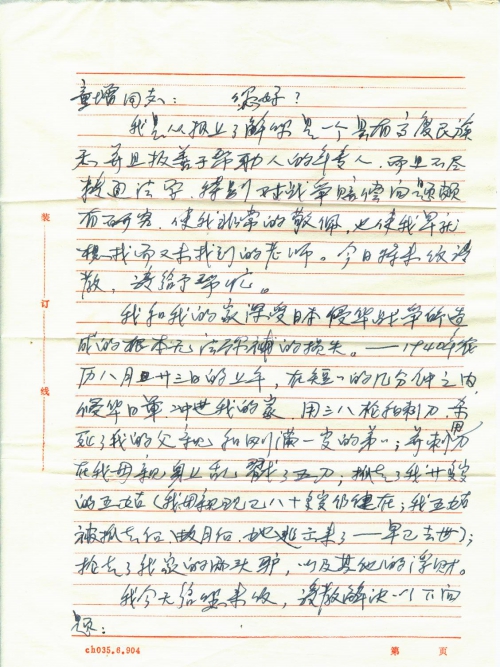 童增同志：你好？
我是从报上了解你是一个具有高度民族
并且极善于帮助人的年青人，而且不尽
精通法学，特别对战争赔偿问题颇
有研究，使我非常的敬佩，也使我早就
想找而又未找到的老师。今日特来信请
教，请给予帮忙。
我和我的家深受日本侵华战争所造
成的根本无法弥补的损失。——1940年
历八月廿三日的上午，在短短的几分钟之内，
侵华日军冲进我的家，用三八枪和刺刀，杀
死了我的父亲和刚满一岁的弟弟；并刺刀
在我母亲身上乱戳了五刀；抓走了我廿岁
的五姑（我母亲现已八十岁仍健在；我五姑
被抓去后，数月后，她逃出来了——早已去世）；
抢走了我家的两头驴，以及其他的浮财。
我今天给您来信，请教解决以下问
题：
装
订
线
ch035.6.904
第 页